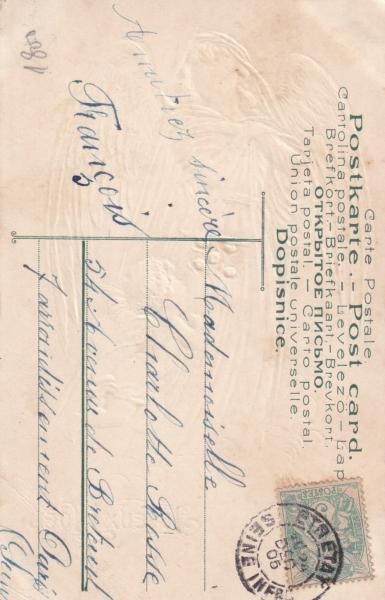 Carte Postale
Postkarte. - Post card.
Cartolina postale. - Levelező-Lap
Brefkort.- Briefkaart.- Brevkort.
ОТКРЫТОЕ ПИСЬМО.
Tarjeta postal. - Carto postal.
Union postale universelle.
Dopisnice.
Amitiés sincères
François
Mademoiselle
Charlotte
54 Avenue de Breteuil
7 arrondissement Paris
ETRETAT
DEC
05
SEINE INFRE
POSTES